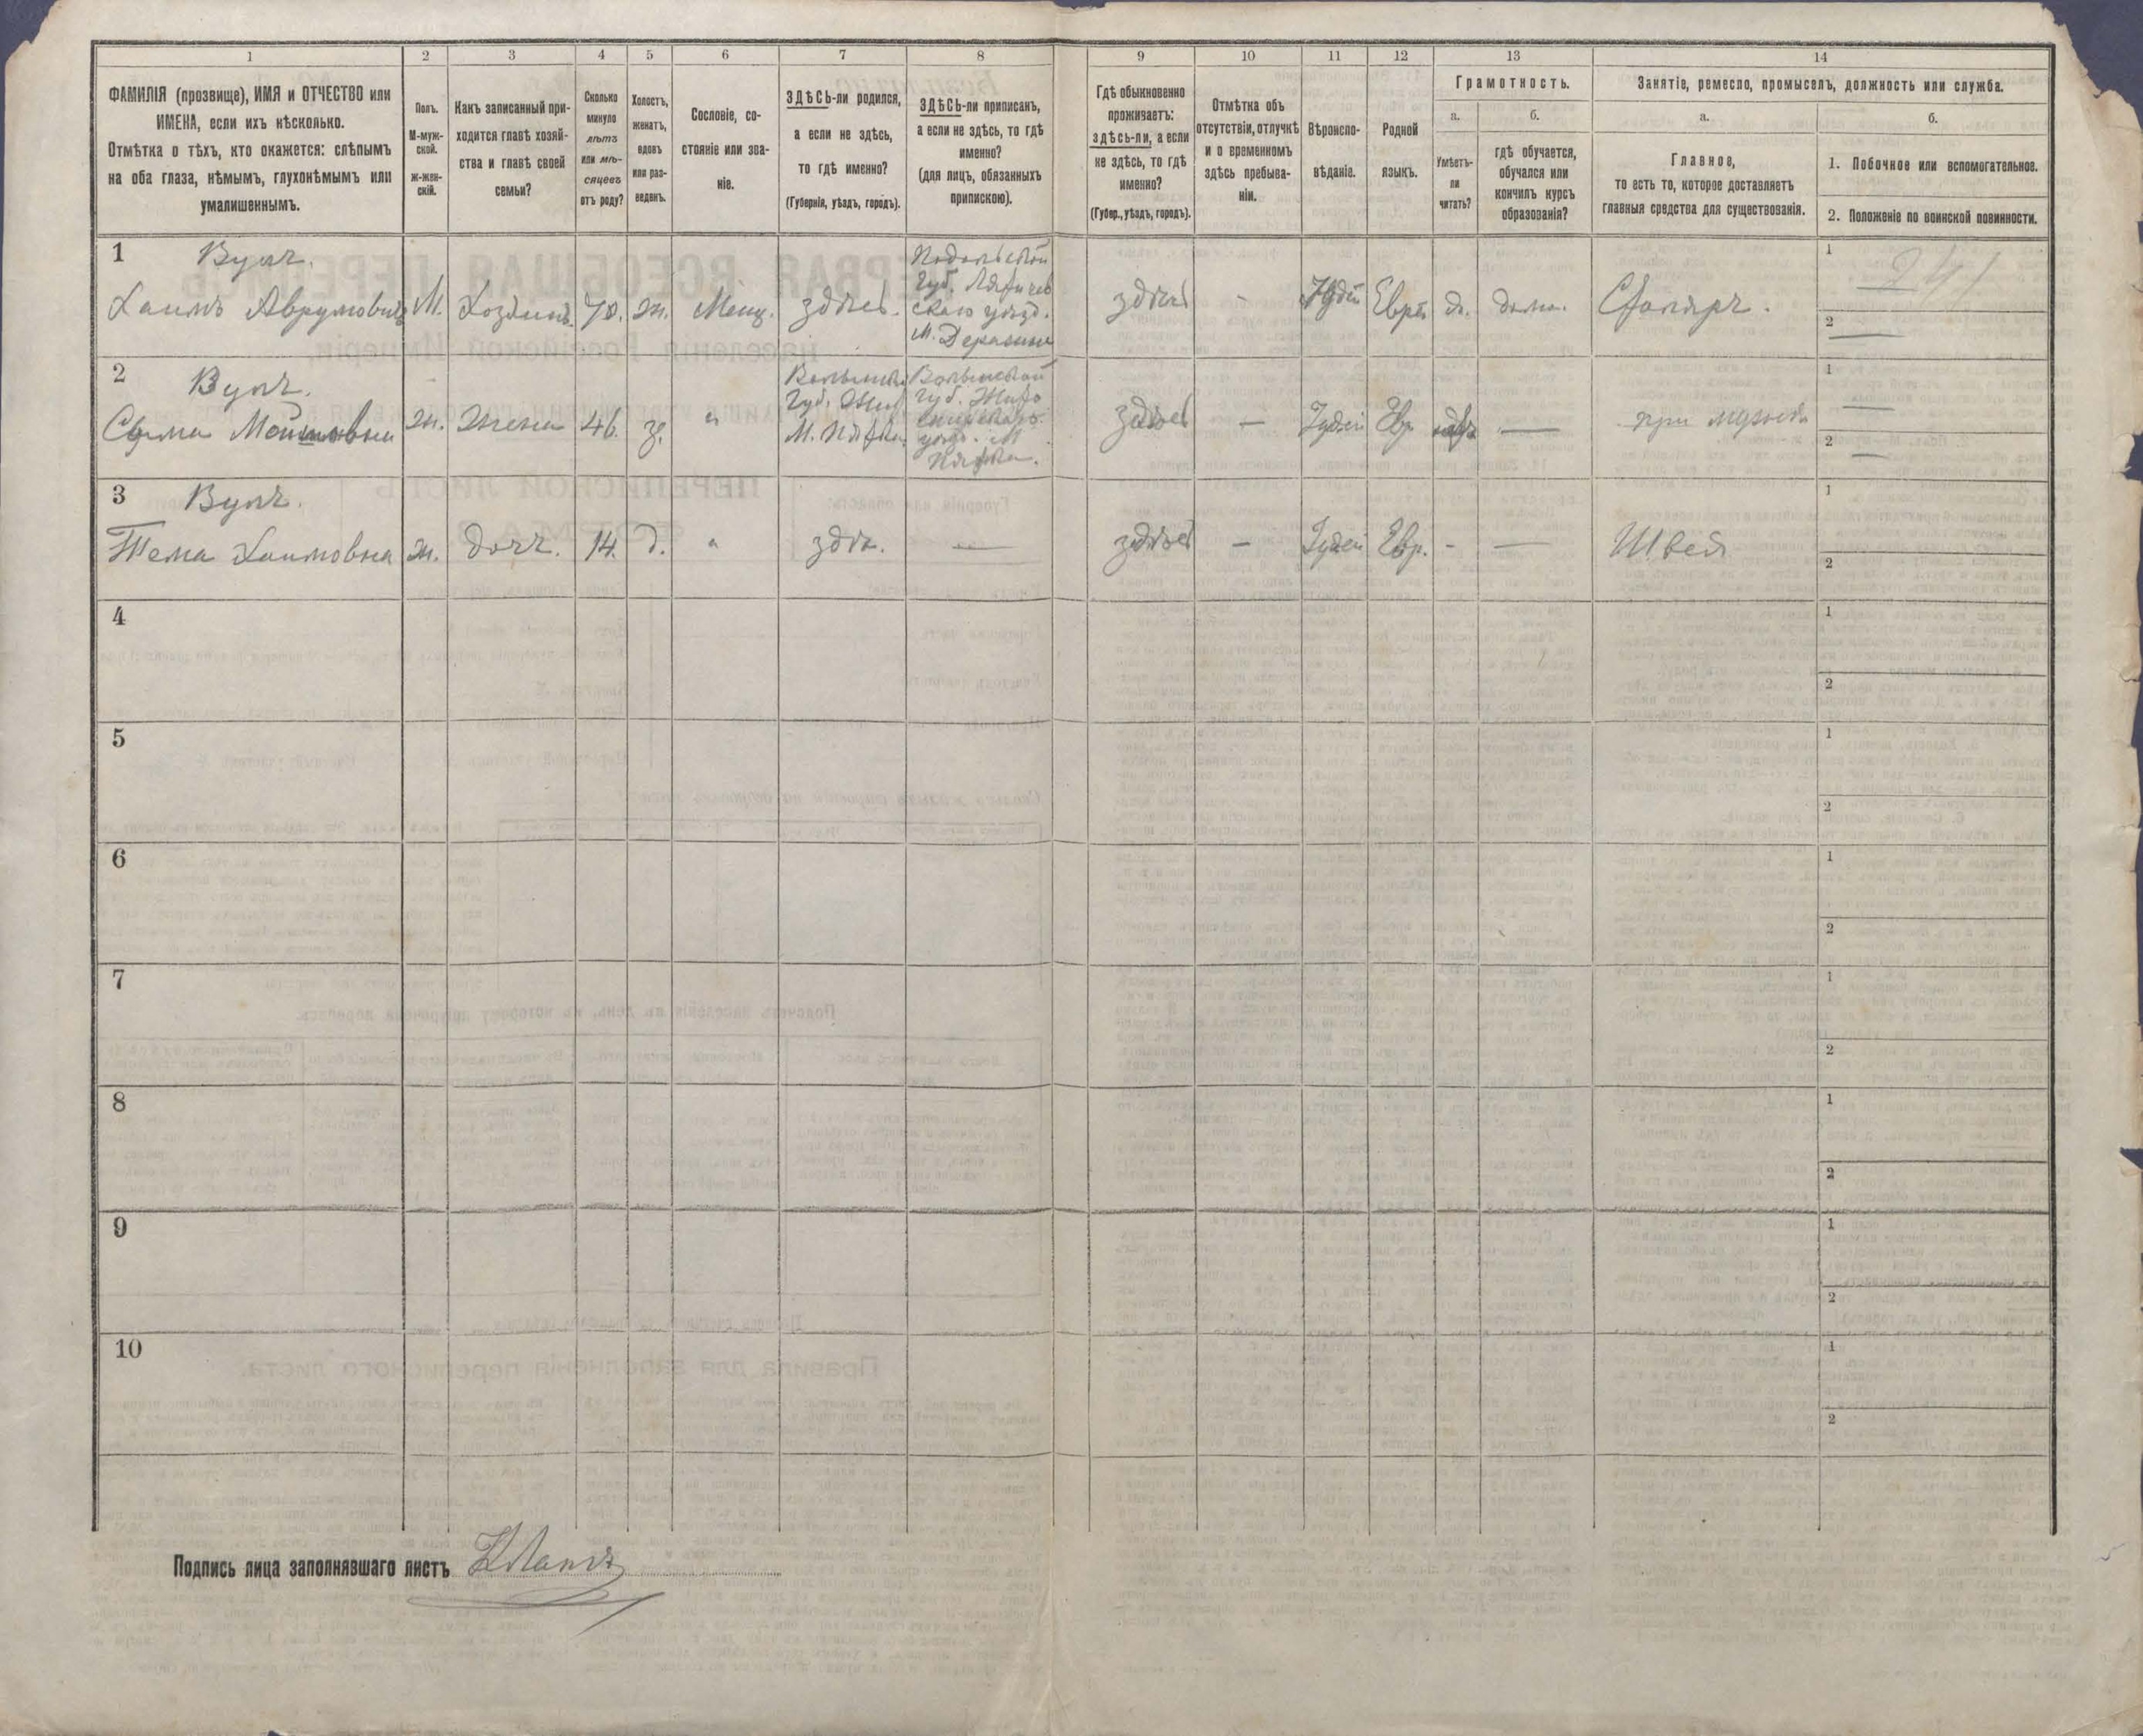 1 2 3 4 5 6 7 8 9 10 11 12 13 14
ФАМИЛІЯ (прозвище), ИМЯ и ОТЧЕСТВО или
ИМЕНА, если ихъ нѣсколько.
Отмѣтка о тѣхъ, кто окажется: слѣпымъ
на оба глаза, нѣмымъ, глухонѣмымъ или
умалишеннымъ.
Полъ.
М-муж-
ской.
ж-жен-
скій.
Какъ записанный при-
ходится главѣ хозяй-
ства и главѣ своей
семьи?
Сколько
минуло
лѣтъ
или мѣ-
сяцевъ
отъ роду?
Холостъ,
женатъ,
вдовъ
или раз-
веденъ.
Сословіе, со-
стояніе или зва-
ніе.
ЗДѢСЬ-ли родился,
а если не здѣсь,
то гдѣ именно?
(Губернія, уѣздъ, городъ).
ЗДѢСЬ-ли приписанъ,
а если не здѣсь, то гдѣ
именно?
(для лицъ, обязанныхъ
припискою).
Гдѣ обыкновенно
проживаетъ:
здѣсь-ли, а если
не здѣсь, то гдѣ
именно?
(Губер., уѣздъ, городъ).
Отмѣтка объ
отсутствіи, отлучкѣ
и о временномъ
здѣсь пребыва-
ніи.
Вѣроиспо-
вѣданіе.
Родной
языкъ.
Грамотность.
а.
Умѣетъ-
ли
читать?
б.
гдѣ обучается,
обучался или
кончилъ курсъ
образованія?
Занятіе, ремесло, промыселъ, должность или служба.
а.
Главное,
то есть то, которое доставляетъ
главныя средства для существованія.
б.
1. Побочное или вспомогательное.
2. Положеніе по воинской повинности.
1 Вулъ.
Хаимъ Аврумовичъ М. Хозяинъ 48. ж. Мещ. здѣсь.
Подольской
Губ. Летичев
скаго уѣзд.
М. Деражни
здѣсь - Іудей Еврей да. дома. Столяръ.
1 241
2 —
2 Вулъ.
ж. Жена 46. з. "
Волынск.
Губ.
М. Пятка
Волынской
губ. Жито
мирскаго
уѣзд. М
Пятка.
здѣсь — Іудей Евр. — при мужѣ
1 —
2 —
3 Вулъ.
Тема Хаимовна ж. дочь. 14. д. " здѣс. — здѣсь — Іудей Евр. - — Швея
1
2
4
1
2
5
1
2
6
1
2
7
1
2
8
1
2
9
1
2
10
1
2
Подпись лица заполнявшаго листъ